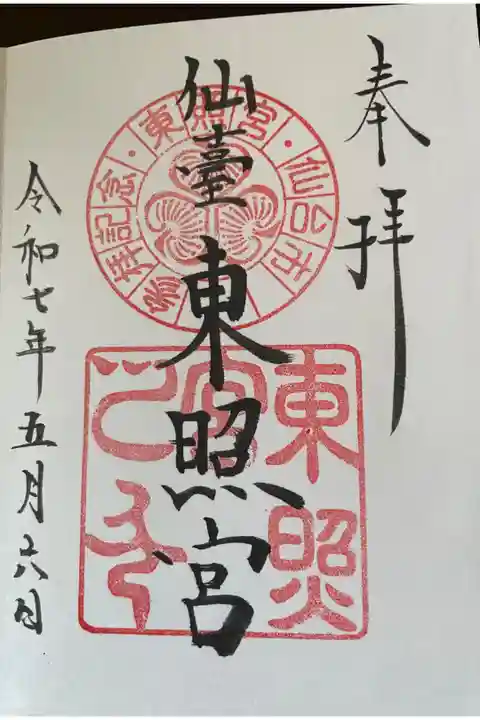 奉拝
仙臺東照宮
令和七年五月六日
東照宮・仙台市
参拝記念
東照
宮